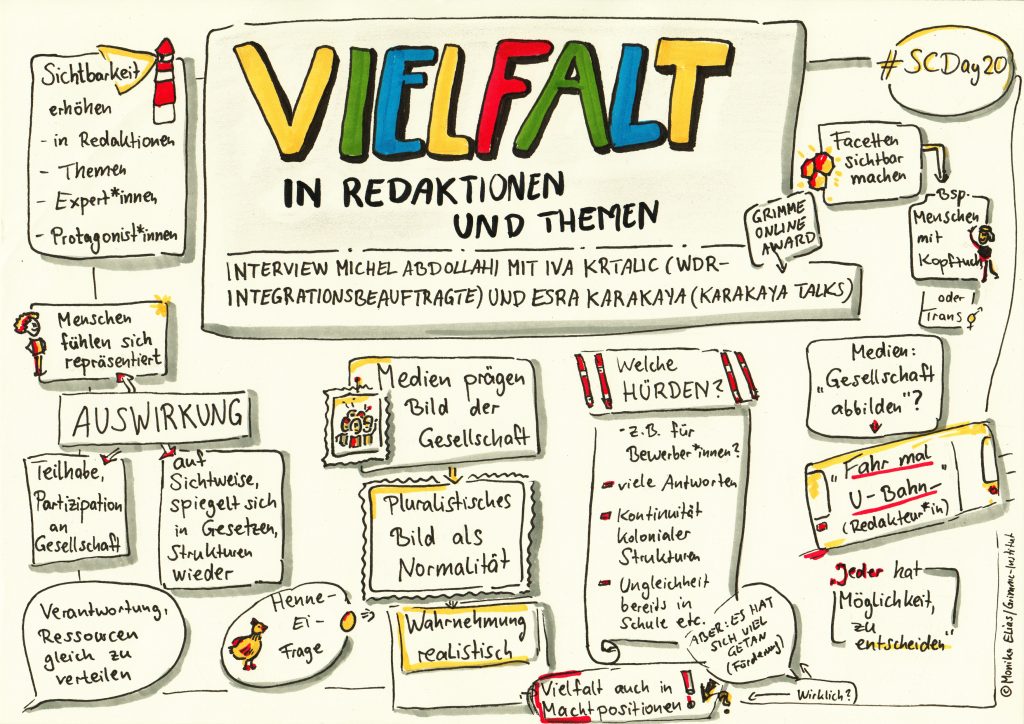 VIELFALT
IN REDAKTIONEN
UND THEMEN
INTERVIEW MICHEL ABDOLLAHI MIT IVA KRTALIC (WDR-
INTEGRATIONSBEAUFTRAGTE) UND ESRA KARAKAYA (KARAKAYA TALKS)
GRIMME
ONLINE
AWARD
#SCDay20
Sichtbarkeit
erhöhen
- in Redaktionen
- Themen
- Expert*innen
- Protagonist*innen
Menschen
fühlen sich
repräsentiert
AUSWIRKUNG
Teilhabe,
Partizipation
an
Gesellschaft
auf
Sichtweise,
spiegelt sich
in Gesetzen,
Strukturen
wieder
Verantwortung,
Ressourcen
gleich zu
verteilen
Henne-
Ei-
Frage
Medien prägen
Bild der
Gesellschaft
Pluralistisches
Bild als
Normalität
Wahrnehmung
realistisch
Welche
HÜRDEN?
- z.B. für
Bewerber*innen?
viele Antworten
Kontinuität
Kolonialer
Strukturen
Ungleichheit
bereits in
Schule etc.
ABER: ES HAT
SICH VIEL
GETAN
(Förderung)
Wirklich?
Vielfalt auch in
Machtpositionen!
Facetten
sichtbar
machen
Bsp.
Menschen
mit
Kopftuch
oder
Trans
Medien:
"Gesellschaft
abbilden"?
"Fahr mal
U-Bahn"
(Redakteur*in)
"Jeder hat
Möglichkeit,
zu
entscheiden"
© Monika Elias/Grimme-Institut